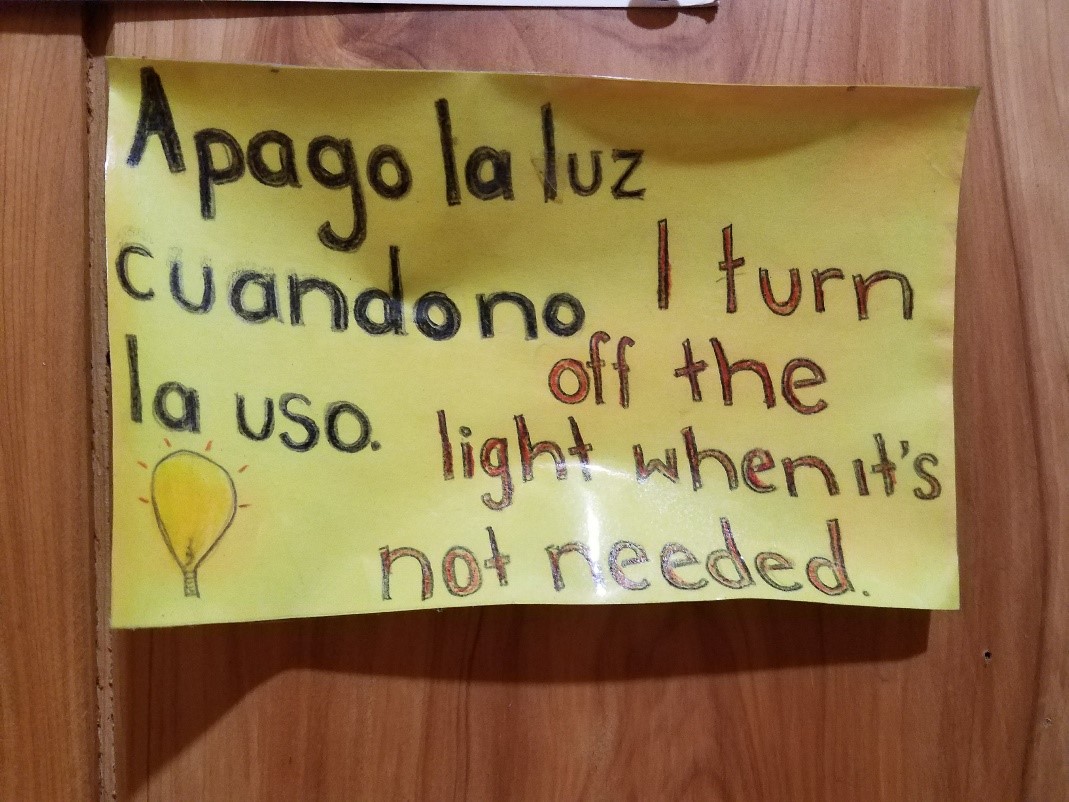 Apago la luz
cuando no
la uso.
I turn
off the
light when it's
not needed.